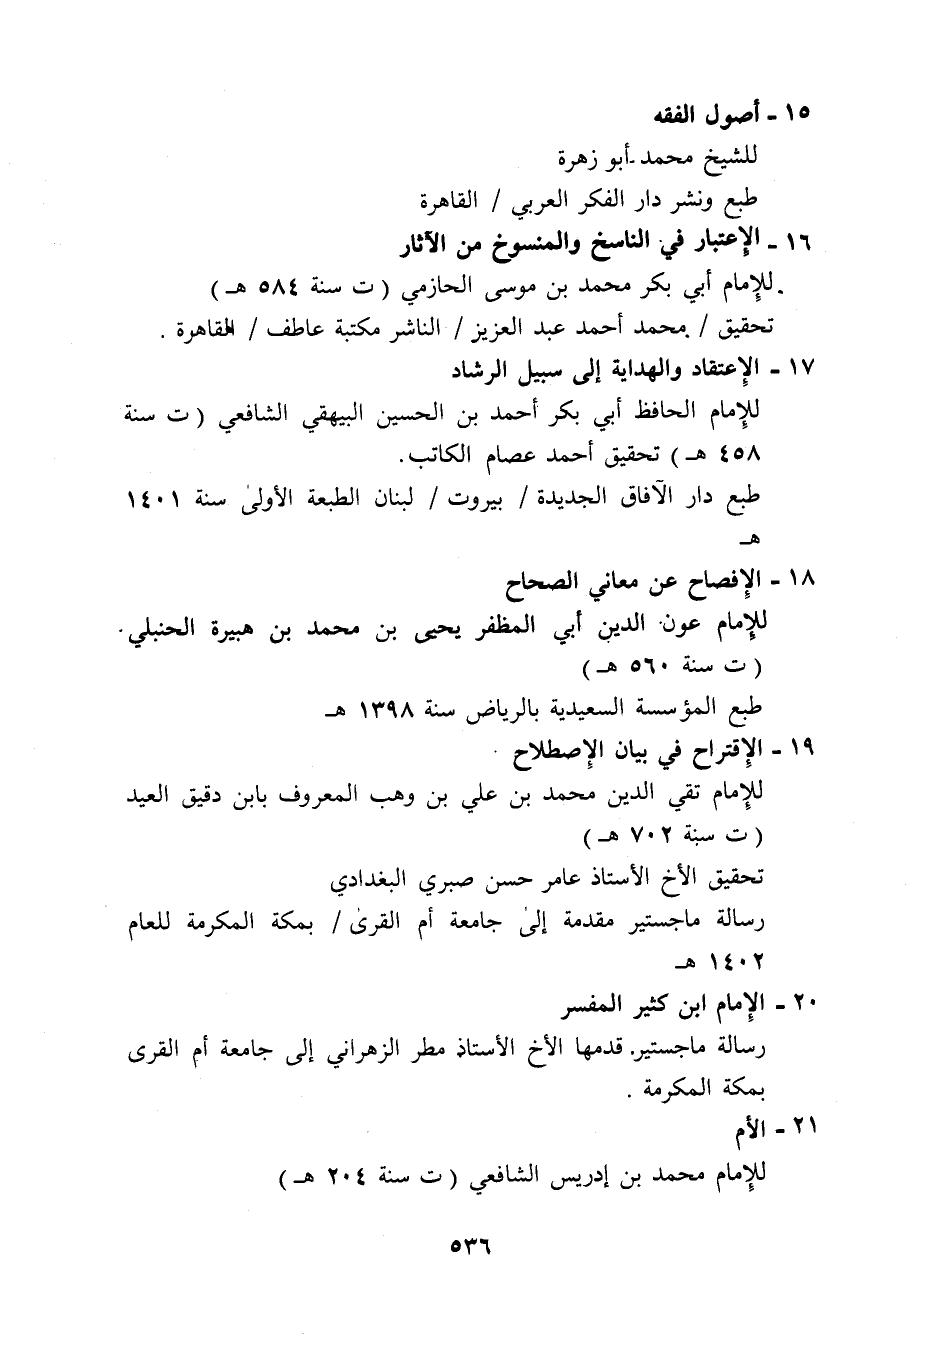 ١٥ - أصول الفقه
للشيخ محمد أبو زهرة
طبع ونشر دار الفكر العربي / القاهرة
١٦ - الإعتبار في الناسخ والمنسوخ من الآثار
للإمام أبي بكر محمد بن موسى الحازمي ( ت سنة ٥٨٤ هـ )
تحقيق / محمد أحمد عبد العزيز / الناشر مكتبة عاطف / القاهرة .
١٧ - الإعتقاد والهداية إلى سبيل الرشاد
للإمام الحافظ أبي بكر أحمد بن الحسين البيهقي الشافعي ( ت سنة
٤٥٨ هـ ) تحقيق أحمد عصام الكاتب .
طبع دار الآفاق الجديدة / بيروت / لبنان الطبعة الأولىٰ سنة ١٤٠١
هـ
١٨ - الإفصاح عن معاني الصحاح
للإمام عون الدين أبي المظفر يحيى بن محمد بن هبيرة الحنبلي .
( ت سنة ٥٦٠ هـ )
طبع المؤسسة السعيدية بالرياض سنة ١٣٩٨ هـ
١٩ - الإقتراح في بيان الإصطلاح
للإمام تقي الدين محمد بن علي بن وهب المعروف بابن دقيق العيد
( ت سنة ٧٠٢ هـ )
تحقيق الأخ الأستاذ عامر حسن صبري البغدادي
رسالة ماجستير مقدمة إلىٰ جامعة أم القرىٰ / بمكة المكرمة للعام
١٤٠٢ هـ
٢٠ - الإمام ابن كثير المفسر
رسالة ماجستير . قدمها الأخ الأستاذ مطر الزهراني إلى جامعة أم القرى
بمكة المكرمة .
٢١ - الأم
للإمام محمد بن إدريس الشافعي ( ت سنة ٢٠٤ هـ )
٥٣٦